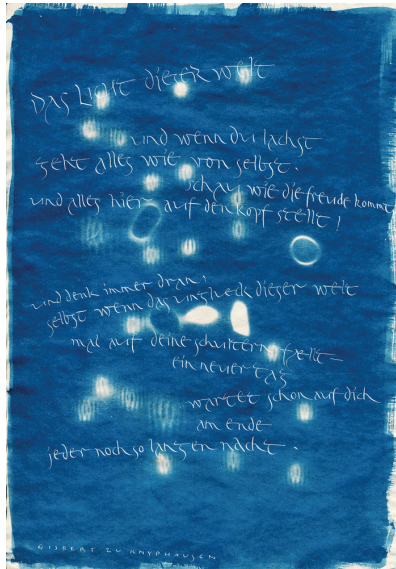 Das Licht dieser Welt
und wenn du lachst
geht alles wie von selbst.
schau wie die freude kommt
und alles hier auf den kopf stellt!
und denk immer dran,
selbst wenn das unglueck dieser welt
mal auf deine schultern faellt
ein neuer tag
wartet schon auf dich
am ende
jeder noch so langen nacht.
GISBERT ZU KNYPHAUSEN